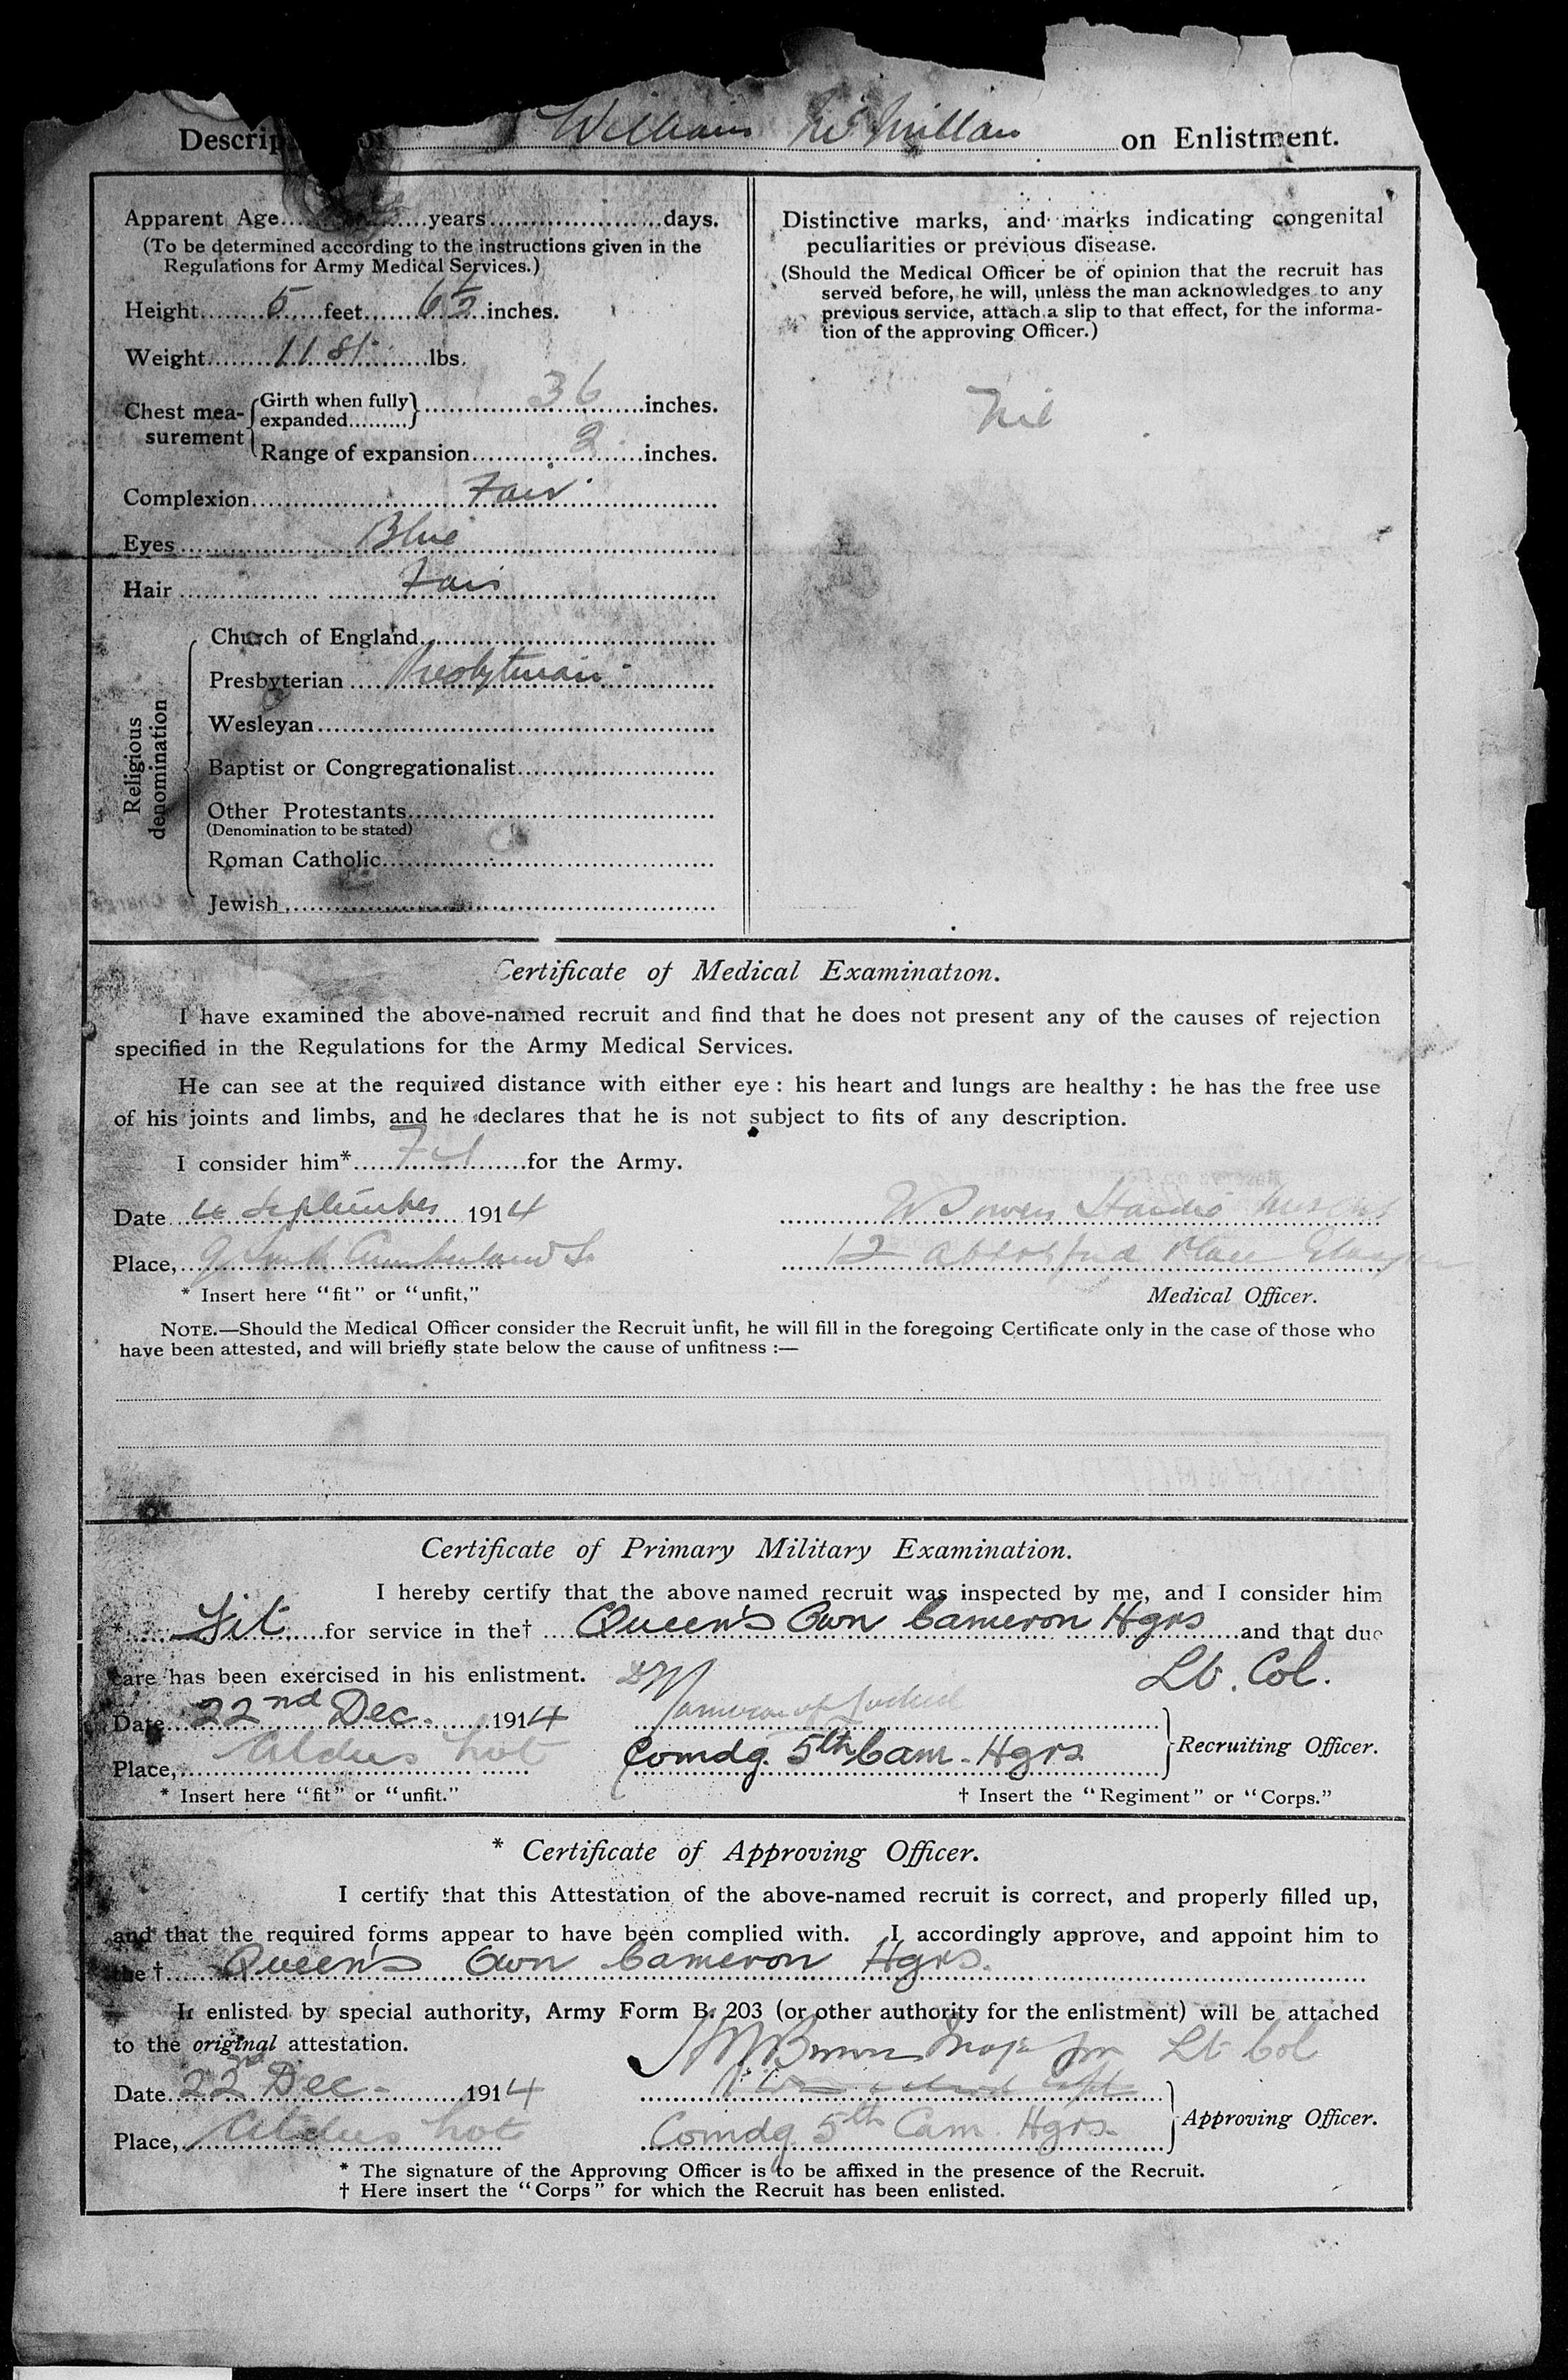 Descrip William McMillan on Enlistment.
Apparent Age years days.
(To be determined according to the instructions given in the
Regulations for Army Medical Services.)
Height 5 feet 6½ inches.
Weight 11 st lbs.
Chest mea-surement { Girth when fully expanded } 36 inches.
Range of expansion inches.
Complexion Fair
Eyes Blue
Hair Fair
Religious denomination
Church of England
Presbyterian Presbyterian
Wesleyan
Baptist or Congregationalist
Other Protestants
(Denomination to be stated)
Roman Catholic
Jewish
Distinctive marks, and marks indicating congenital
peculiarities or previous disease.
(Should the Medical Officer be of opinion that the recruit has
served before, he will, unless the man acknowledges to any
previous service, attach a slip to that effect, for the informa-
tion of the approving Officer.)
Nil
Certificate of Medical Examination.
I have examined the above-named recruit and find that he does not present any of the causes of rejection
specified in the Regulations for the Army Medical Services.
He can see at the required distance with either eye : his heart and lungs are healthy : he has the free use
of his joints and limbs, and he declares that he is not subject to fits of any description.
I consider him* Fit for the Army.
Date September 1914
Place, Cumberland St
12 Abbotsford Place Glasgow
* Insert here "fit" or "unfit,"
Medical Officer.
NOTE.—Should the Medical Officer consider the Recruit unfit, he will fill in the foregoing Certificate only in the case of those who
have been attested, and will briefly state below the cause of unfitness :—
Certificate of Primary Military Examination.
I hereby certify that the above named recruit was inspected by me, and I consider him
* Fit for service in the† Queen's Own Cameron Hgrs and that due
care has been exercised in his enlistment. Lt. Col.
Date 22nd Dec. 1914 Cameron of Lochiel
Place, Aldershot Comdg. 5th Cam. Hgrs Recruiting Officer.
* Insert here "fit" or "unfit." † Insert the "Regiment" or "Corps."
* Certificate of Approving Officer.
I certify that this Attestation of the above-named recruit is correct, and properly filled up,
and that the required forms appear to have been complied with. I accordingly approve, and appoint him to
the † Queen's Own Cameron Hgrs.
If enlisted by special authority, Army Form B. 203 (or other authority for the enlistment) will be attached
to the original attestation.
Brown Major for Lt Col
Date 22nd Dec. 1914
Place, Aldershot Comdg. 5th Cam. Hgrs. Approving Officer.
* The signature of the Approving Officer is to be affixed in the presence of the Recruit.
† Here insert the "Corps" for which the Recruit has been enlisted.